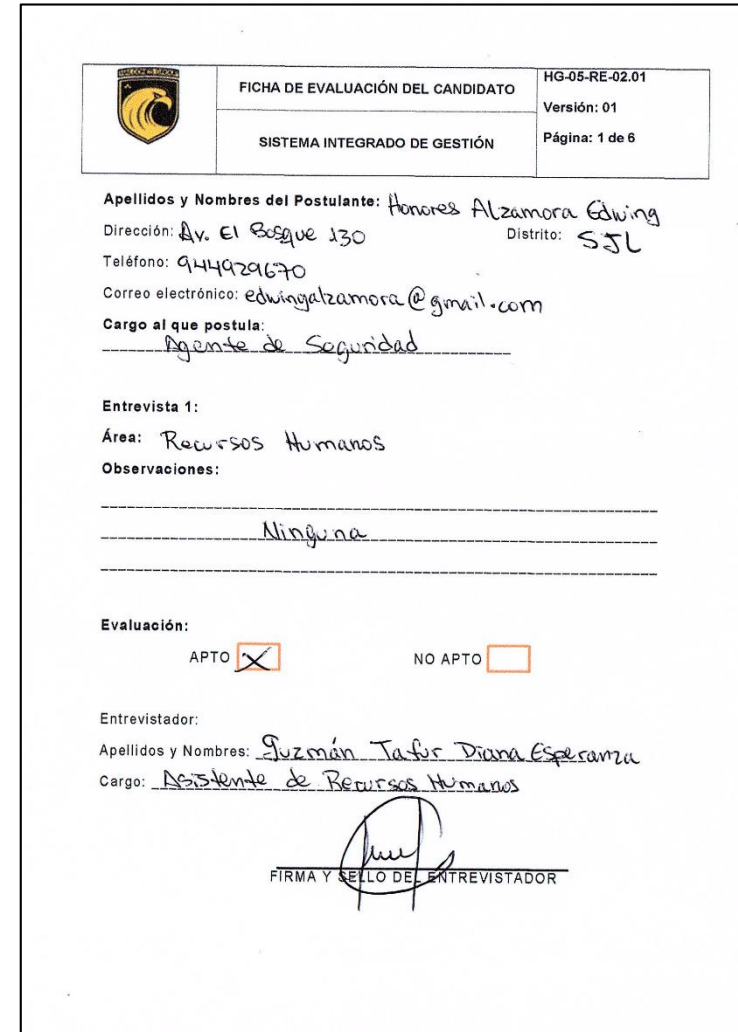 FICHA DE EVALUACIÓN DEL CANDIDATO
HG-05-RE-02.01
Versión: 01
SISTEMA INTEGRADO DE GESTIÓN
Página: 1 de 6
Apellidos y Nombres del Postulante: Honores Alzamora Edwing
Dirección: Av. El Bosque 130 Distrito: SJL
Teléfono: 944929670
Correo electrónico: edwingalzamora@gmail.com
Cargo al que postula:
Agente de Seguridad
Entrevista 1:
Área: Recursos Humanos
Observaciones:
Ninguna
Evaluación:
APTO X NO APTO
Entrevistador:
Apellidos y Nombres: Guzmán Tafur Diana Esperanza
Cargo: Asistente de Recursos Humanos
FIRMA Y SELLO DEL ENTREVISTADOR